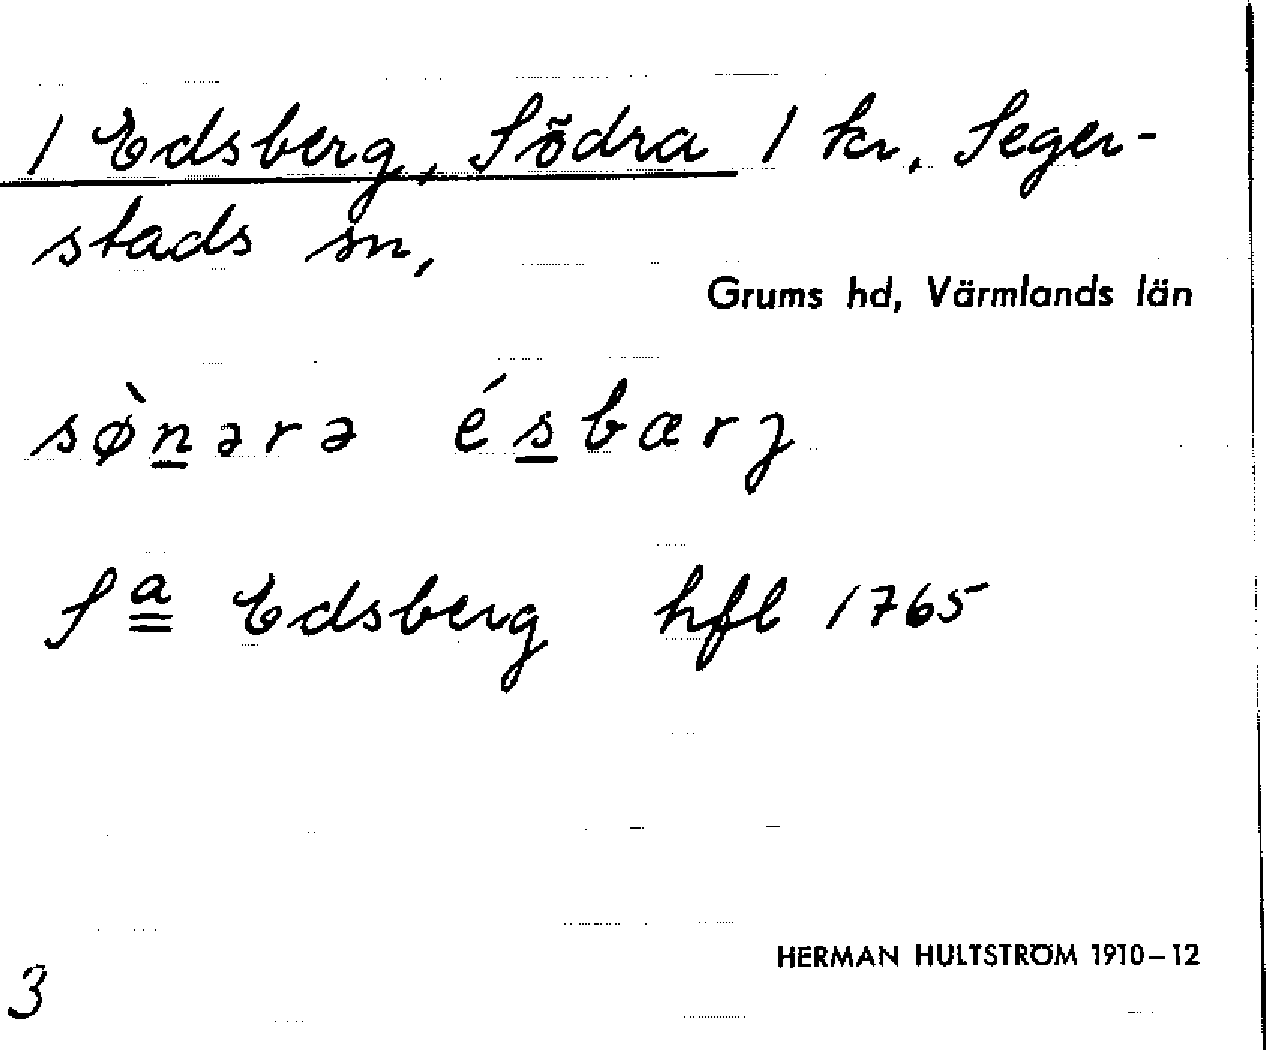 / Edsberg, Södra / kr, Seger-
stads sn,
Grums hd, Värmlands län
sø̀n̲ərə és̲bærȷ
Sa Edsberg hfl 1765
HERMAN HULTSTRÖM 1910–12
3